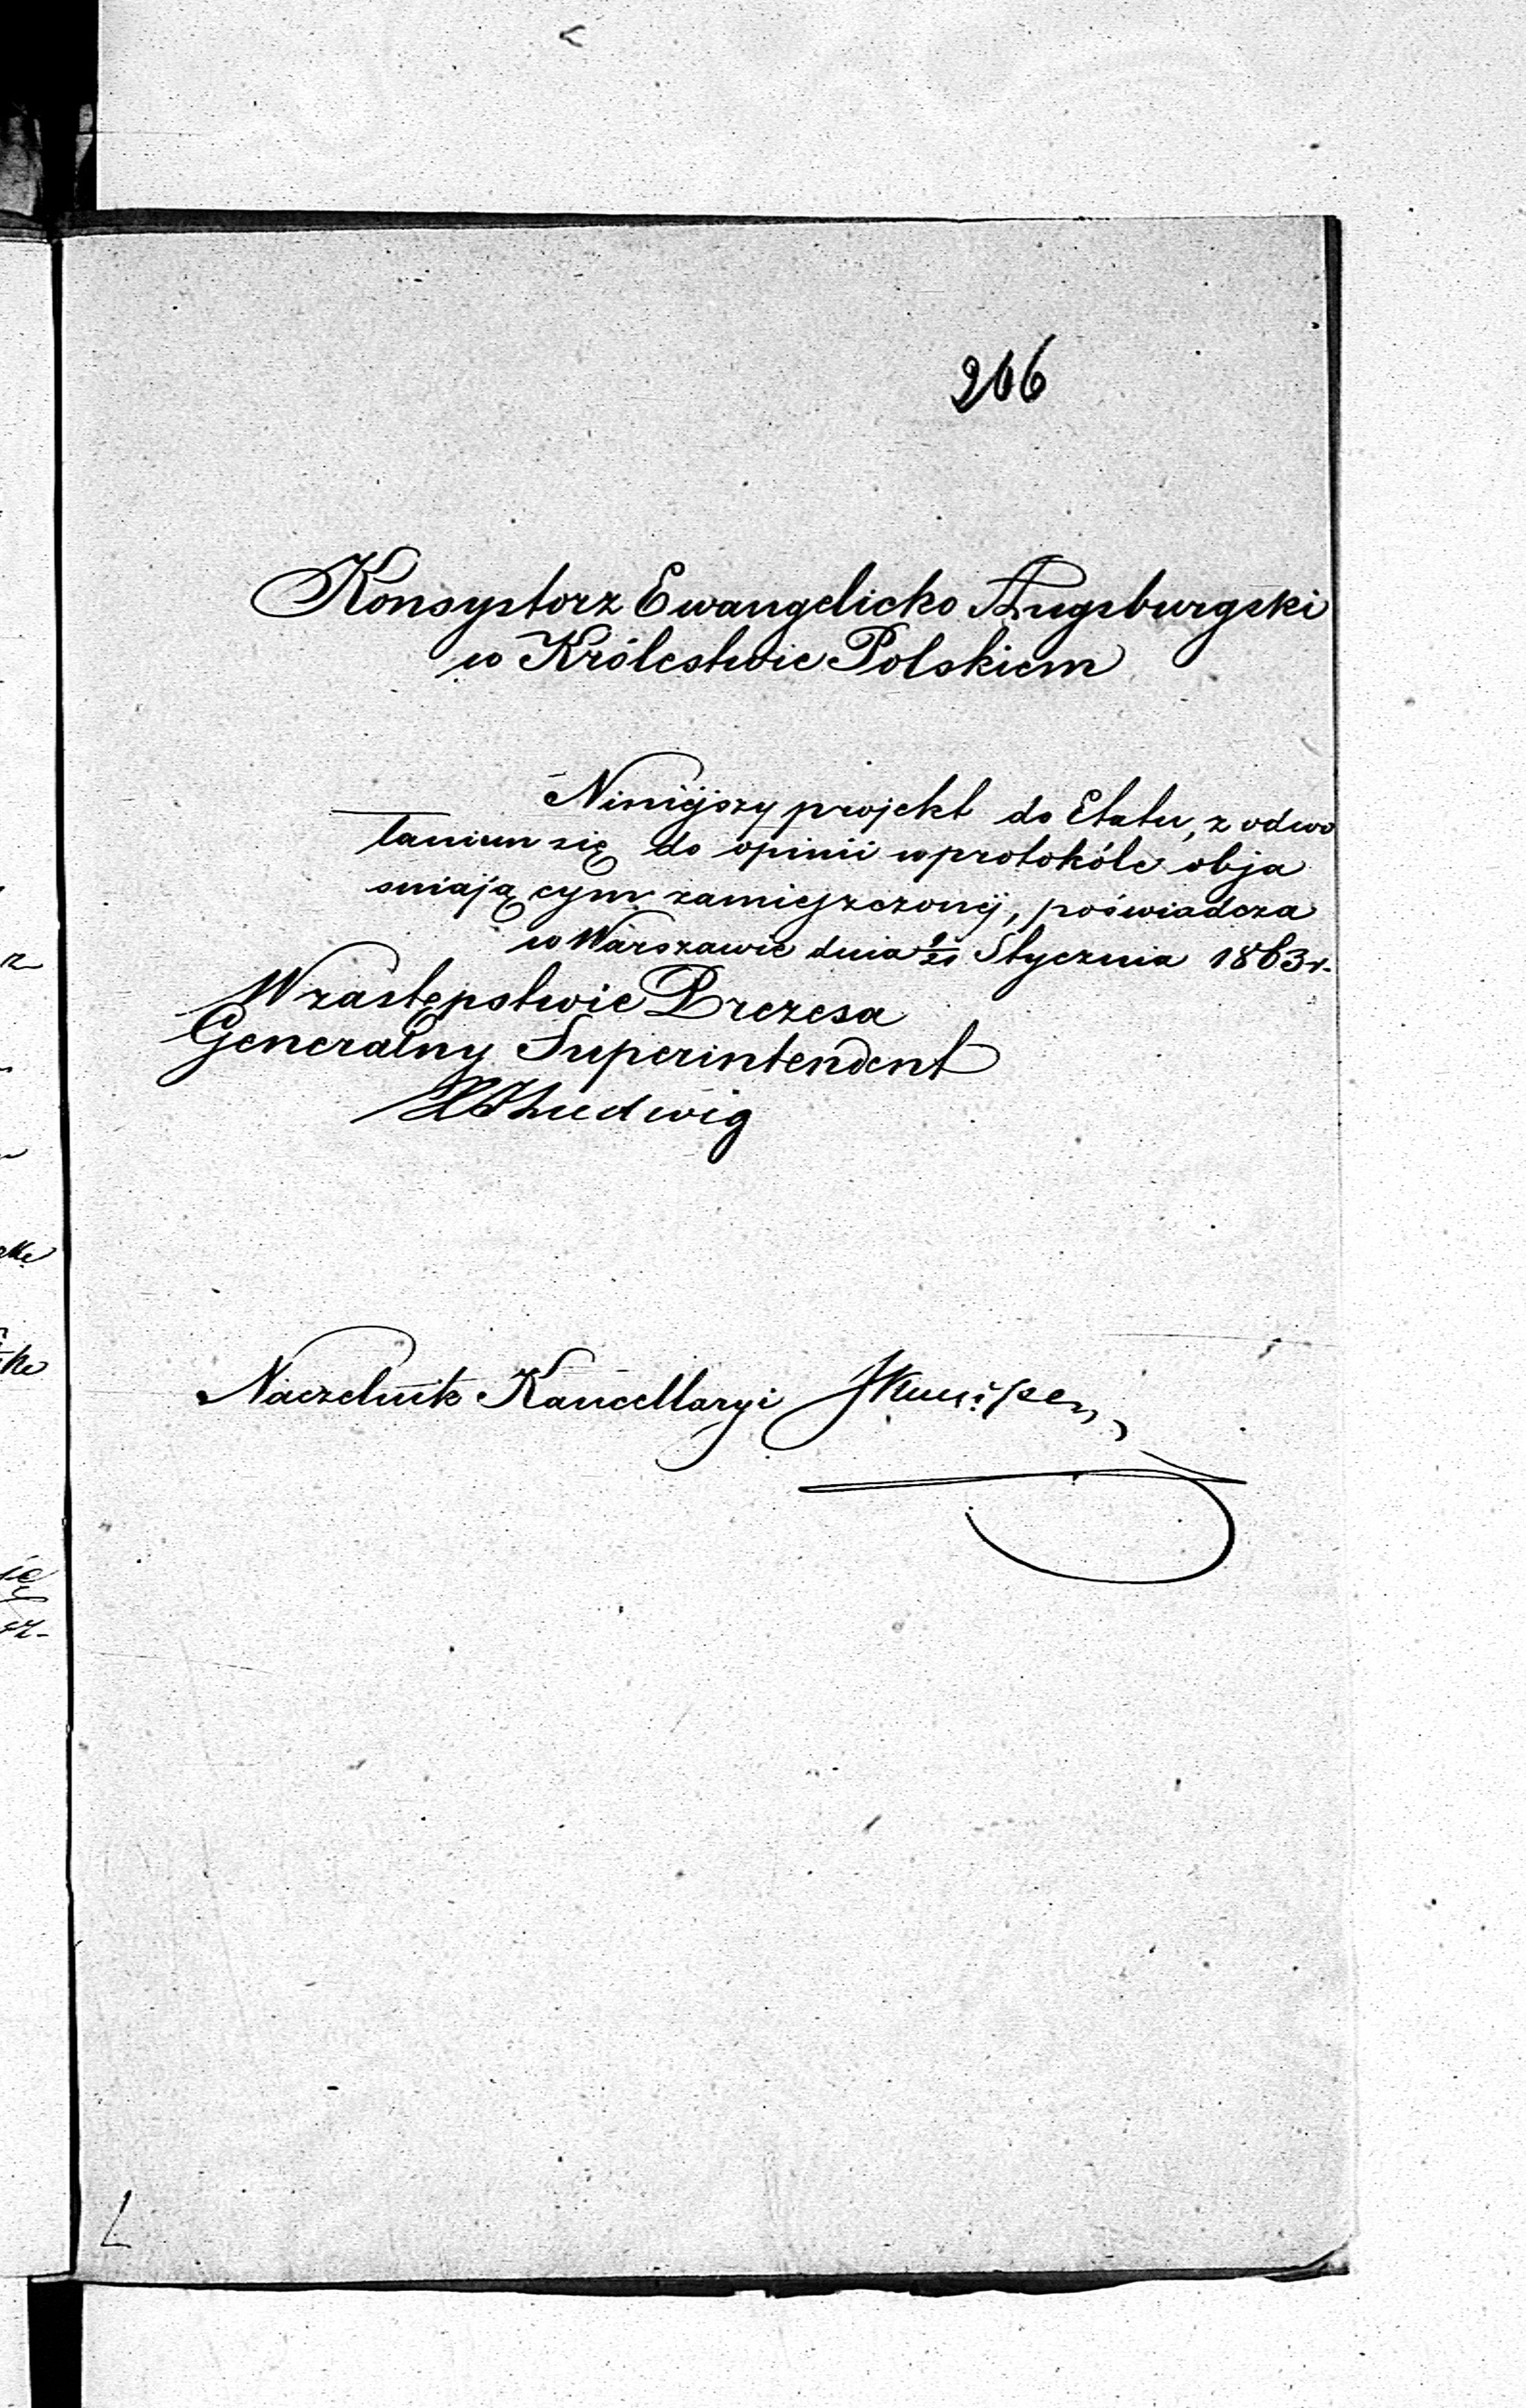 206
Konsystorz Ewangelicko Augsburgski
w Królestwie Polskiem
Niniejszy projekt do Etatu, z odwo
łaniem się do opinii w protokóle obja
sniającym zamieszczonéj, poświadcza
w Warszawie dnia 9/21 Stycznia 1863 r.
W zastępstwie Prezesa
Generalny Superintendent
Ludwig
Naczelnik Kancellaryi